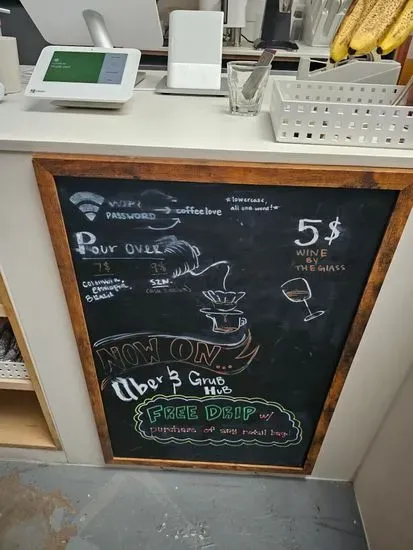 WIFI
PASSWORD → coffeelove
*lowercase,
all one word!*
Pour Over
7$
Colombia,
Ethiopia,
Brazil
5$
WINE
BY
THE GLASS
NOW ON...
Uber & GRUB
HUB
FREE DRIP w/
purchase of any retail bag!